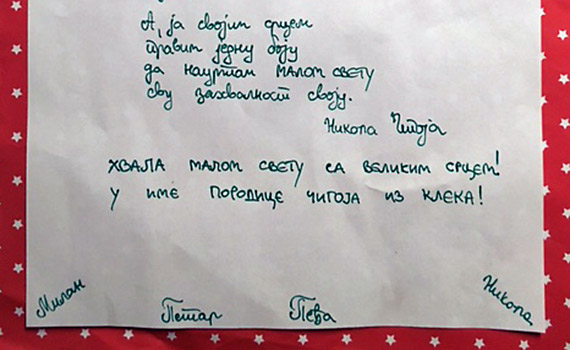 А, ја својим срцем
правим једну боју
да нацртам МАЛОМ СВЕТУ
сву захвалност своју.
Никола Чигоја
ХВАЛА МАЛОМ СВЕТУ СА ВЕЛИКИМ СРЦЕМ!
У ИМЕ ПОРОДИЦЕ ЧИГОЈА ИЗ КЛЕКА!
Милан
Петар
Пева
Никола